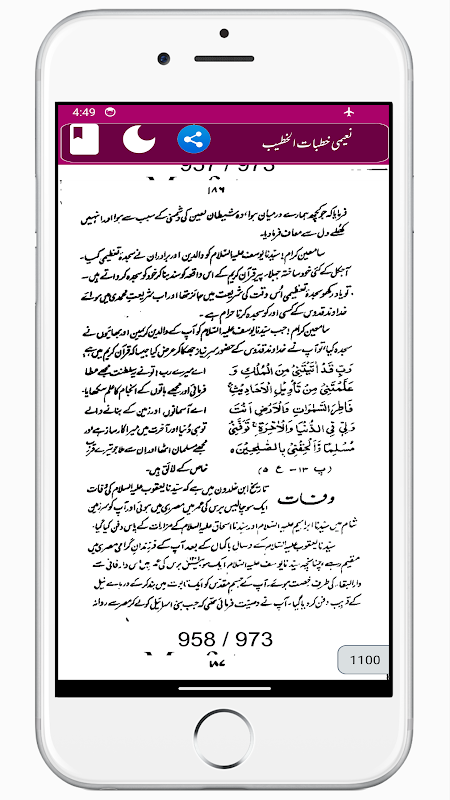 4:49
نعیمی خطبات الخطیب
957 / 973
۱۸۶
فرمایا کہ جو کچھ ہمارے درمیان ہوا، وہ شیطان لعین کی دشمنی کے سبب سے ہوا اور انہیں
کھلے دل سے معاف فرما دیا۔
سامعین کرام! سیدنا یوسف علیہ السلام کو والدین اور برادران نے سجدۂ تعظیمی کیا۔
آجکل کے کئی خود ساختہ جہلا۔ پیر قرآن کریم کے اس واقعہ کو سند بنا کر خود کو سجدہ کرواتے ہیں۔
تو یاد رکھو سجدۂ تعظیمی اُس وقت کی شریعت میں جائز تھا اور اب شریعت محمدی میں سوائے
خداوند قدوس کے کسی اور کو سجدہ کرنا حرام ہے۔
سامعین کرام! جب سیدنا یوسف علیہ السلام کو آپ کے والدین کریمین اور بھائیوں نے
سجدہ کیا تو آپ نے خداوند قدوس کے حضور سر نیاز جھکا کر عرض کیا جیسا کہ قرآن کریم میں ہے،
رَبِّ قَدْ اٰتَيْتَنِيْ مِنَ الْمُلْكِ وَ
عَلَّمْتَنِيْ مِنْ تَأْوِيْلِ الْاَحَادِيْثِ
فَاطِرَ السَّمٰوٰتِ وَالْاَرْضِ اَنْتَ
وَلِيّٖ فِي الدُّنْيَا وَالْاٰخِرَةِ تَوَفَّنِيْ
مُسْلِمًا وَّاَلْحِقْنِيْ بِالصّٰلِحِيْنَ
(پ ۱۳ - ع ۵)
اے میرے رب! تو نے یہ سلطنت مجھے عطا
فرمائی اور مجھے باتوں کے انجام کا علم سکھایا۔
اے آسمانوں اور زمین کے بنانے والے
تو ہی دنیا اور آخرت میں میرا کارساز ہے اور
مجھے مسلمان اٹھا اور ان سے ملا جو تیرے قرب
خاص کے لائق ہیں۔
وفات
تاریخ ابن خلدون میں ہے کہ سیدنا یعقوب علیہ السلام کی وفات
ایک سو چالیس برس کی عمر میں مصر ہی میں ہوئی اور آپ کو سرزمین
شام میں سیدنا ابراہیم علیہ السلام اور سیدنا اسحاق علیہ السلام کے مزارات کے پاس دفن کیا گیا۔
سیدنا یعقوب علیہ السلام کے وصال باکمال کے بعد آپ کے فرزندان گرامی مصر ہی میں
مقیم رہے چنانچہ سیدنا یوسف علیہ السلام ایک سو برس کی عمر میں اس دار فانی سے
دار البقا کی طرف رخصت ہوئے۔ آپ کے جسم مقدس کو ایک تابوت میں بند کر کے دریائے نیل
کے قریب دفن کر دیا گیا۔ آپ نے وصیت فرمائی تھی کہ جب بنی اسرائیل کو لے کر مصر سے روانہ
958 / 973
1100
۱۸۷